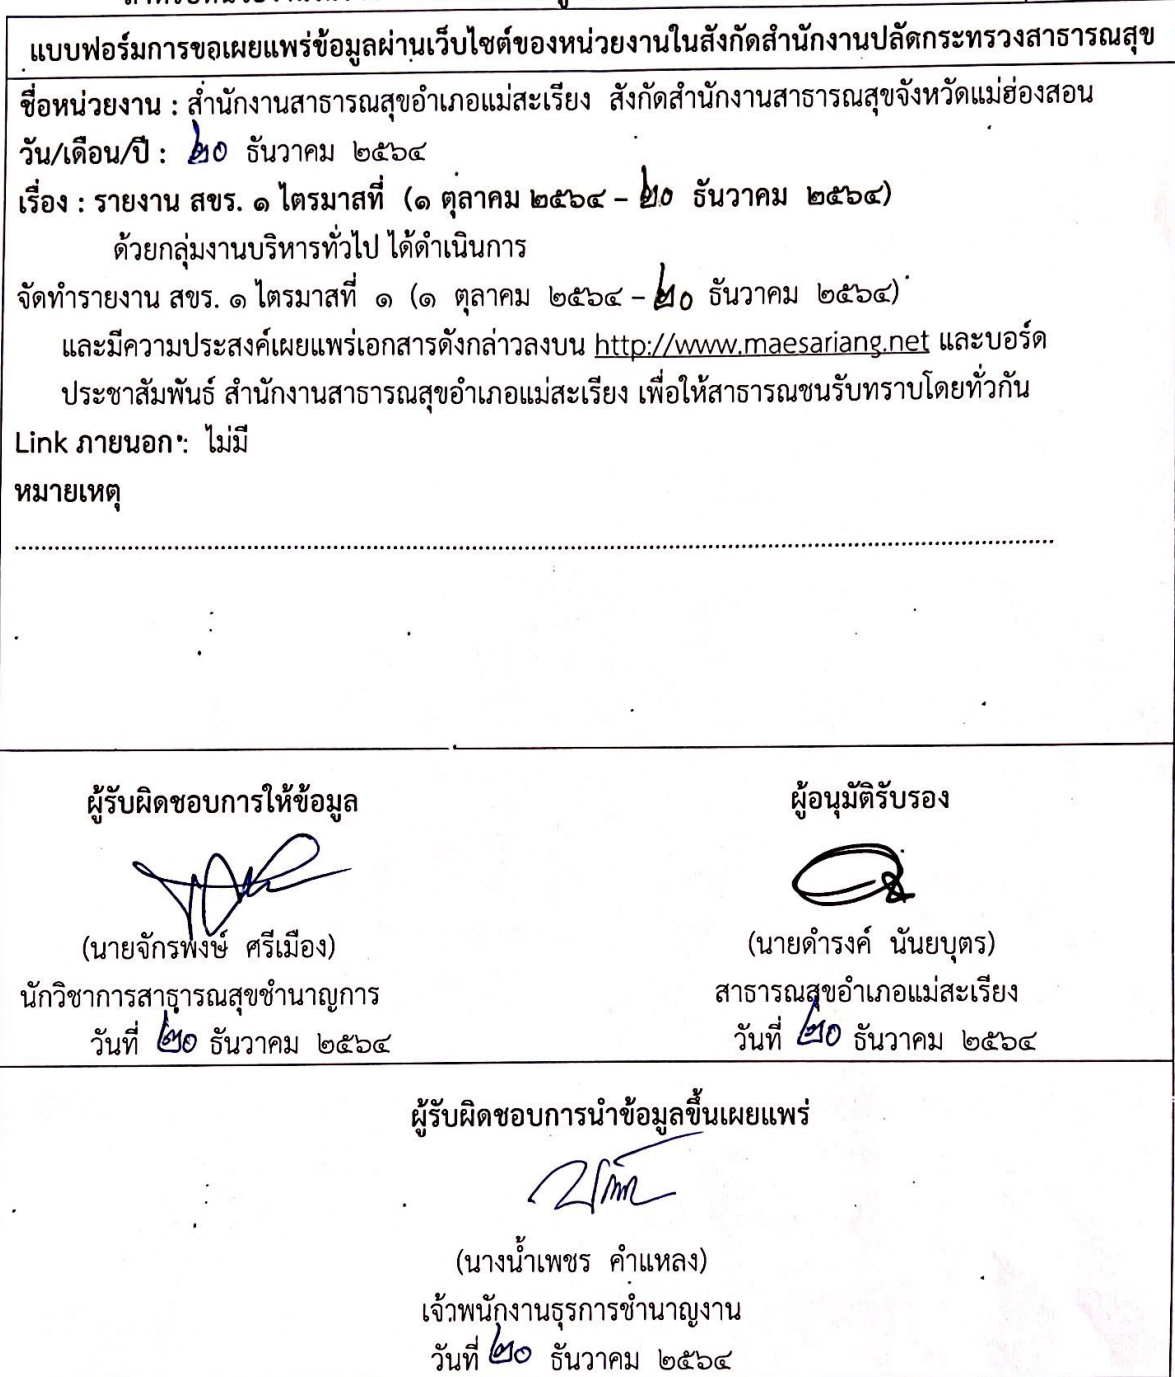 แบบฟอร์มการขอเผยแพร่ข้อมูลผ่านเว็บไซต์ของหน่วยงานในสังกัดสำนักงานปลัดกระทรวงสาธารณสุข
ชื่อหน่วยงาน : สำนักงานสาธารณสุขอำเภอแม่สะเรียง สังกัดสำนักงานสาธารณสุขจังหวัดแม่ฮ่องสอน
วัน/เดือน/ปี : ๒๐ ธันวาคม ๒๕๖๔
เรื่อง : รายงาน สขร. ๑ ไตรมาสที่ (๑ ตุลาคม ๒๕๖๔ – ๒๐ ธันวาคม ๒๕๖๔)
ด้วยกลุ่มงานบริหารทั่วไป ได้ดำเนินการ
จัดทำรายงาน สขร. ๑ ไตรมาสที่ ๑ (๑ ตุลาคม ๒๕๖๔ – ๒๐ ธันวาคม ๒๕๖๔)
และมีความประสงค์เผยแพร่เอกสารดังกล่าวลงบน http://www.maesariang.net และบอร์ด
ประชาสัมพันธ์ สำนักงานสาธารณสุขอำเภอแม่สะเรียง เพื่อให้สาธารณชนรับทราบโดยทั่วกัน
Link ภายนอก : ไม่มี
หมายเหตุ
ผู้รับผิดชอบการให้ข้อมูล
(นายจักรพงษ์ ศรีเมือง)
นักวิชาการสาธารณสุขชำนาญการ
วันที่ ๒๐ ธันวาคม ๒๕๖๔
ผู้อนุมัติรับรอง
(นายดำรงค์ นันยบุตร)
สาธารณสุขอำเภอแม่สะเรียง
วันที่ ๒๐ ธันวาคม ๒๕๖๔
ผู้รับผิดชอบการนำข้อมูลขึ้นเผยแพร่
(นางน้ำเพชร คำแหลง)
เจ้าพนักงานธุรการชำนาญงาน
วันที่ ๒๐ ธันวาคม ๒๕๖๔